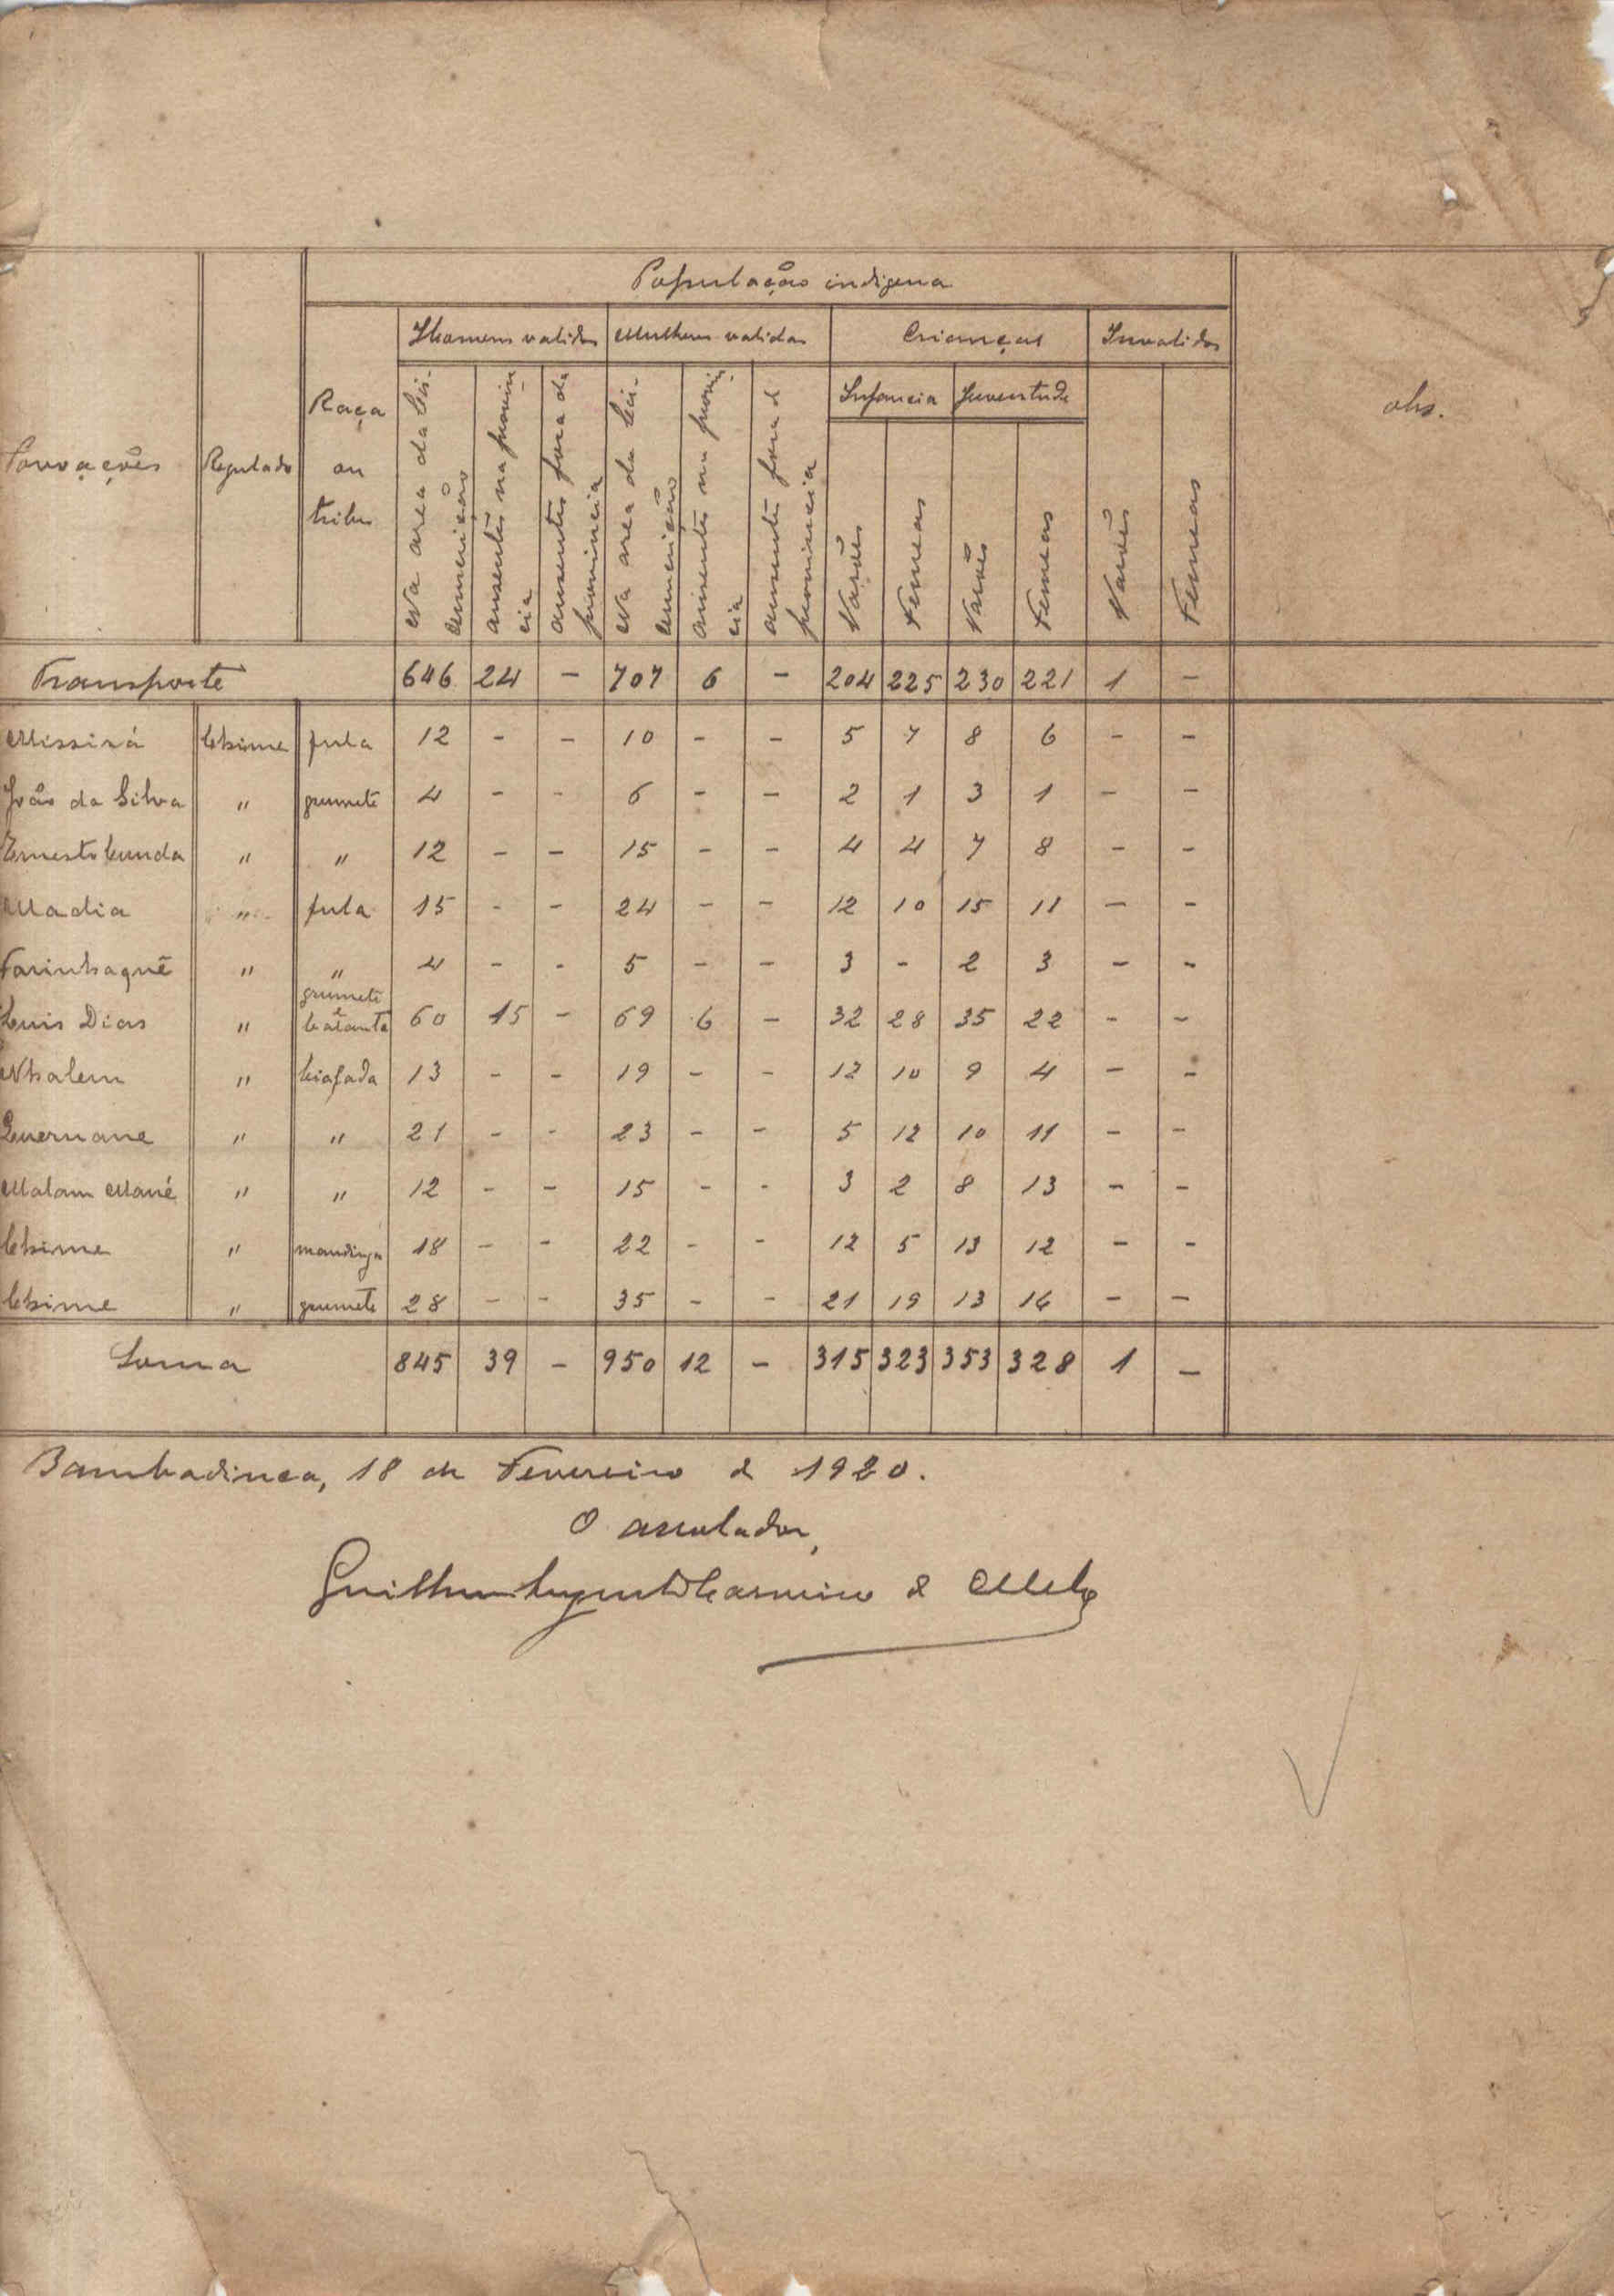 População indigena
Povoações Regulado Raça ou tribu Homens validos Mulheres validas Creanças Invalidos obs.
Infancia Juventude
Na area da Cir-cunscrição ausentes na provin-cia ausentes fora da provincia Na area da Cir-cunscrição ausentes na provin-cia ausentes fora da provincia Varões Femeas Varões Femeas Varões Femeas
Transporte 646 24 - 707 6 - 204 225 230 221 1 -
Missirá Chime fula 12 - - 10 - - 5 7 8 6 - -
João da Silva " grumete 4 - - 6 - - 2 1 3 1 - -
Ernesto Cunda " " 12 - - 15 - - 4 4 7 8 - -
Madia " fula 15 - - 24 - - 12 10 15 11 - -
Farinhaquê " " 4 - - 5 - - 3 - 2 3 - -
Luis Dias " grumete e balanta 60 15 - 69 6 - 32 28 35 22 - -
Nhalem " biafada 13 - - 19 - - 12 10 9 4 - -
" " 21 - - 23 - - 5 12 10 11 - -
Malam Mané " " 12 - - 15 - - 3 2 8 13 - -
Chime " mandinga 18 - - 22 - - 12 5 13 12 - -
Chime " grumete 28 - - 35 - - 21 19 13 16 - -
Soma 845 39 - 950 12 - 315 323 353 328 1 -
Bambadinca, 18 de Fevereiro de 1920.
O arrolador,
Guilherme Augusto Carneiro de Mello